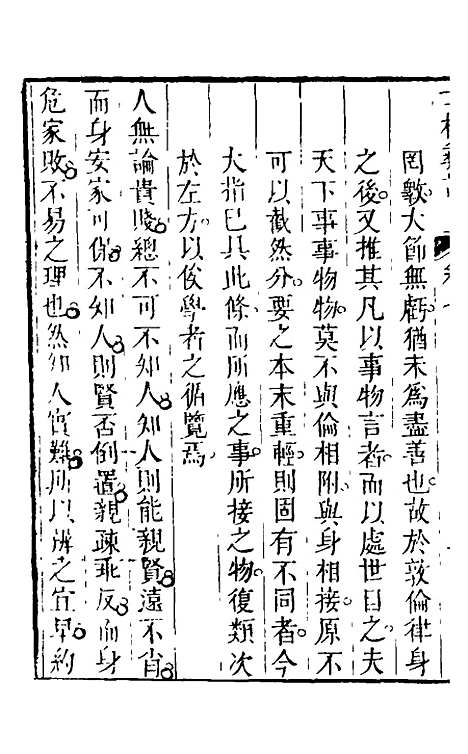 罔斁大節無虧猶未爲盡善也故於敦倫律身
之後又推其凡以事物言者而以處世目之夫
天下事事物物莫不與倫相附與身相接原不
可以截然分要之本末重輕則固有不同者今
大指已具此條而所應之事所接之物復類次
於左方以俟學者之循覽焉
人無論貴賤總不可不知人知人則能親賢遠不肖
而身安家可保不知人則賢否倒置親疎乖反而身
危家敗不易之理也然知人實難所以辨之宜早約